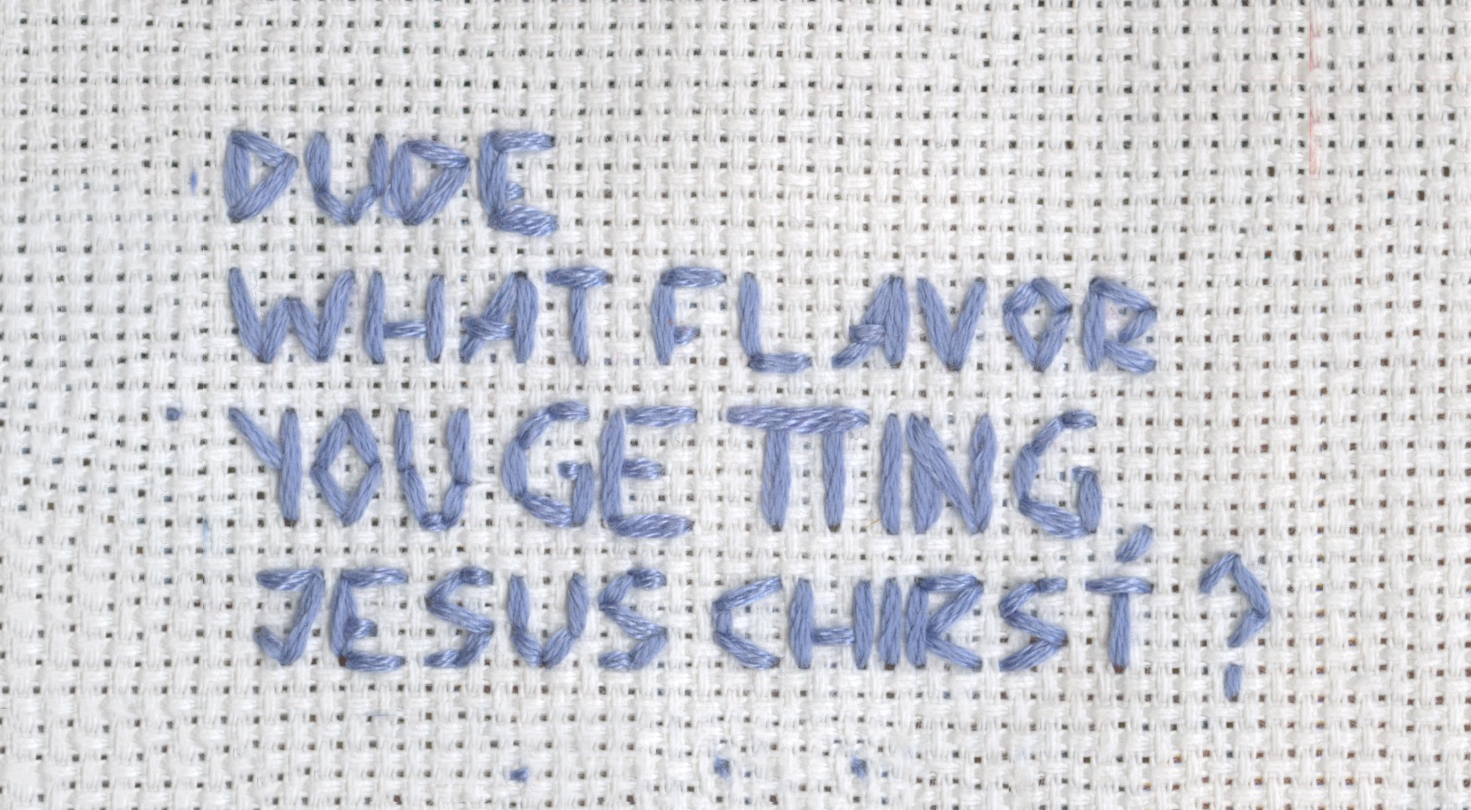 DUDE
WHAT FLAVOR
YOU GETTING,
JESUS CHIRST ?